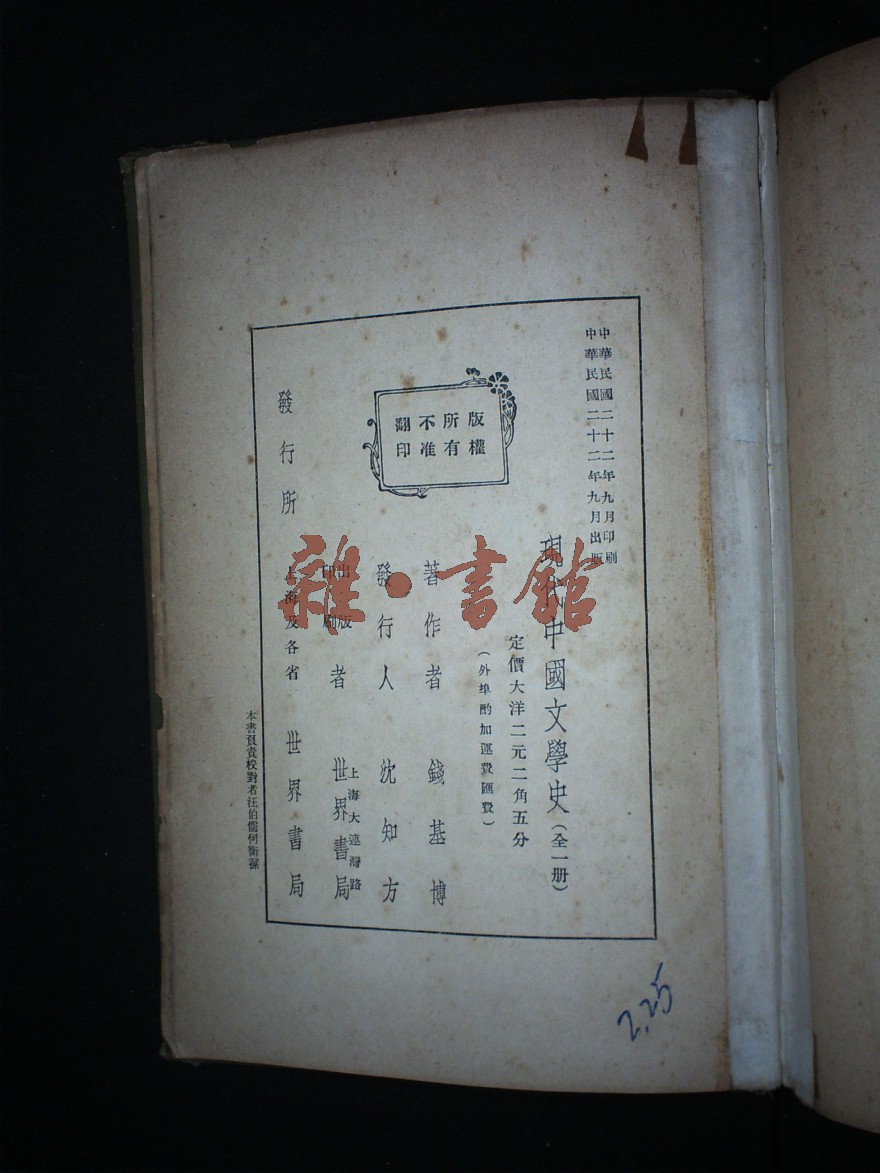 中華民國二十二年九月印刷
中華民國二十二年九月出版
現代中國文學史（全一册）
定價大洋二元二角五分
（外埠酌加運費匯費）
版權
所有
不准
翻印
著作者 錢基博
發行人 沈知方
出版
印刷
者
上海大連灣路
世界書局
發行所
上海及各省
世界書局
本書負責校對者汪伯儒何衡孫
雜·書館
2.25